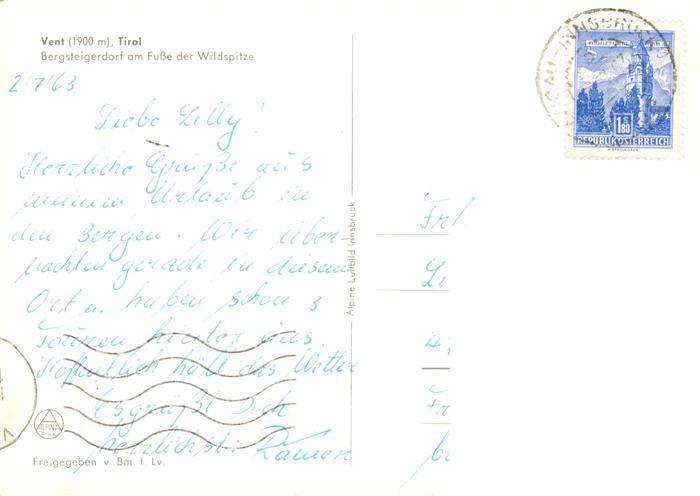 Vent (1900 m), Tirol
Bergsteigerdorf am Fuße der Wildspitze
2/7/63
Liebe Lilly!
Herzliche Grüße aus
meinem Urlaub in
den Bergen. Wir über-
nachten gerade in diesem
Ort u. haben schon 3
Touren hinter uns.
Hoffentlich hält das Wetter
Es grüßt Dich
herzlichst
Freigegeben v. Bm. f. Lv.
ALPINA
Alpine Luftbild Innsbruck
INNSBRUCK
1.80
REPUBLIK ÖSTERREICH
Frl